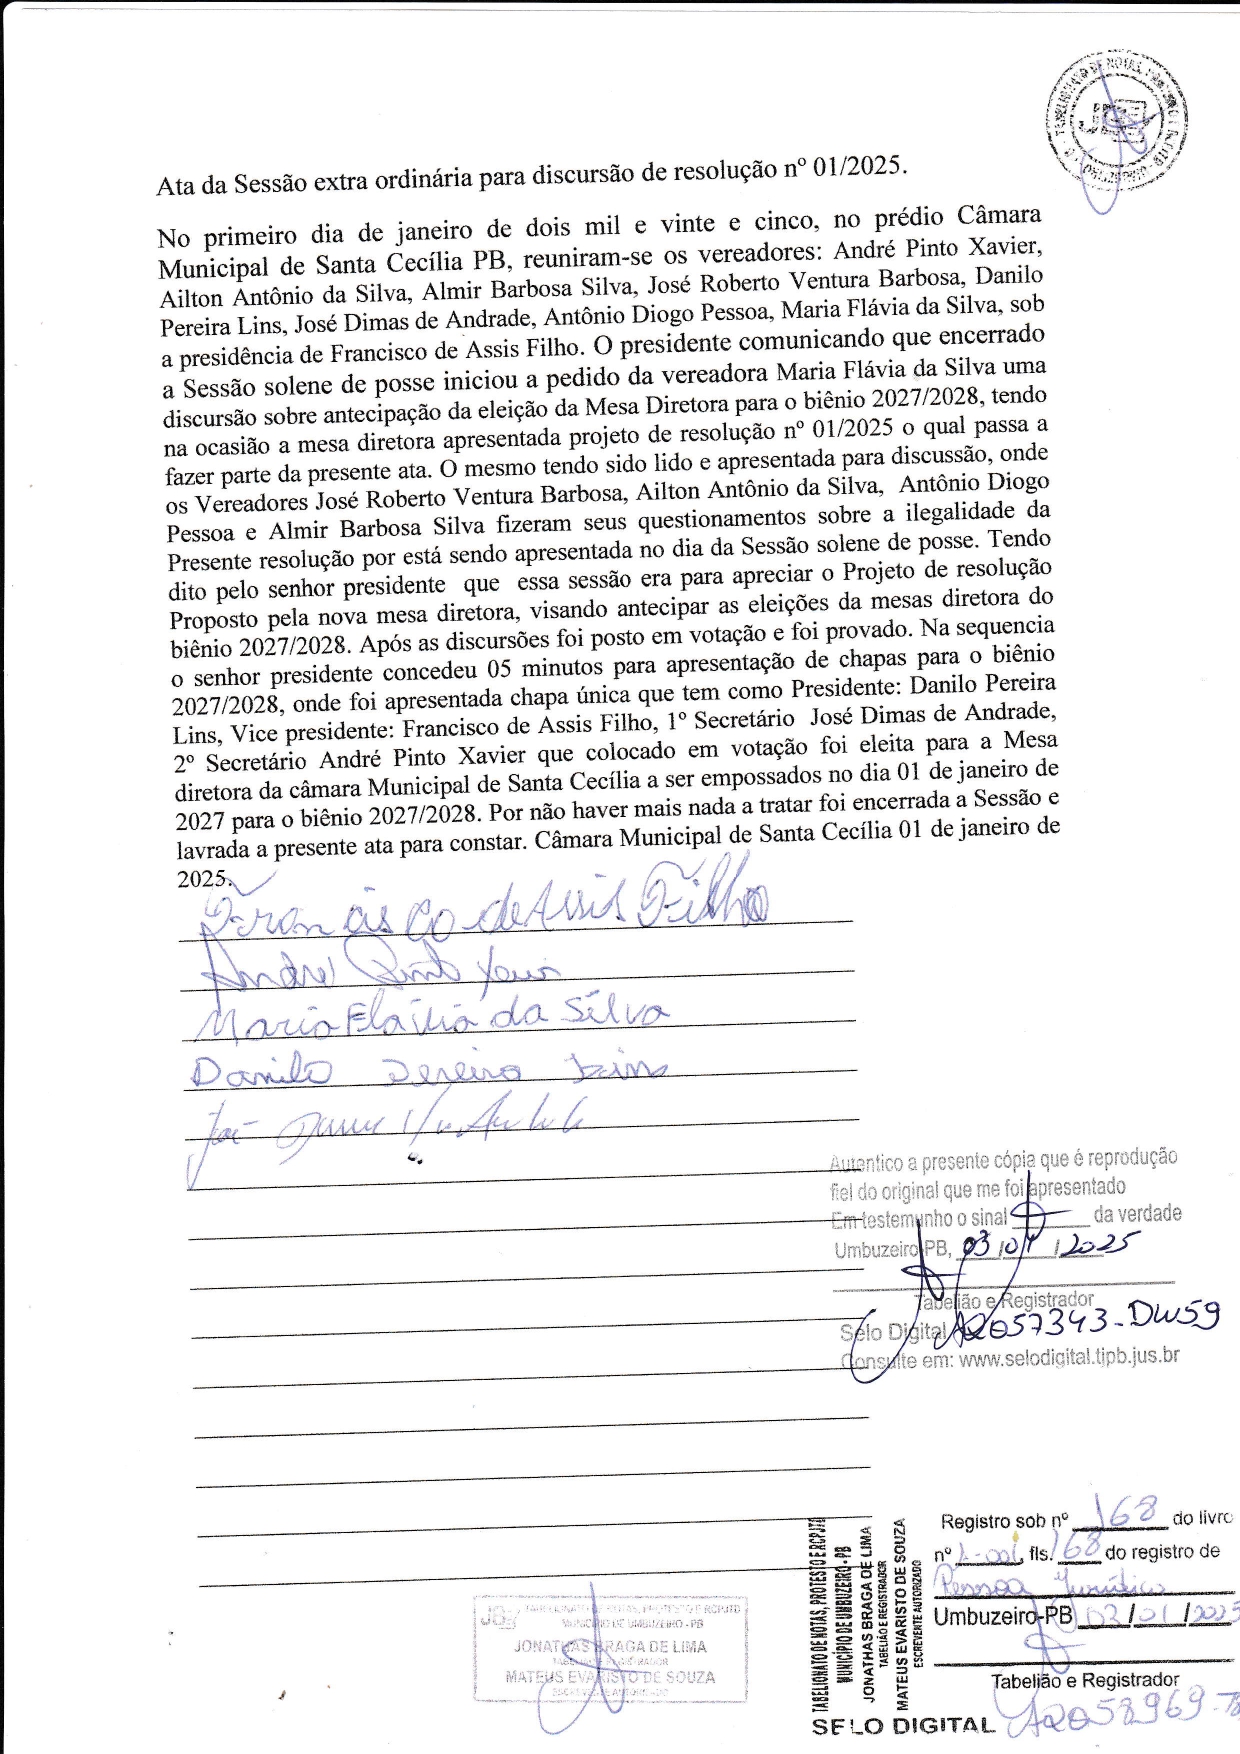 Ata da Sessão extra ordinária para discursão de resolução nº 01/2025.
No primeiro dia de janeiro de dois mil e vinte e cinco, no prédio Câmara
Municipal de Santa Cecília PB, reuniram-se os vereadores: André Pinto Xavier,
Ailton Antônio da Silva, Almir Barbosa Silva, José Roberto Ventura Barbosa, Danilo
Pereira Lins, José Dimas de Andrade, Antônio Diogo Pessoa, Maria Flávia da Silva, sob
a presidência de Francisco de Assis Filho. O presidente comunicando que encerrado
a Sessão solene de posse iniciou a pedido da vereadora Maria Flávia da Silva uma
discursão sobre antecipação da eleição da Mesa Diretora para o biênio 2027/2028, tendo
na ocasião a mesa diretora apresentada projeto de resolução nº 01/2025 o qual passa a
fazer parte da presente ata. O mesmo tendo sido lido e apresentada para discussão, onde
os Vereadores José Roberto Ventura Barbosa, Ailton Antônio da Silva, Antônio Diogo
Pessoa e Almir Barbosa Silva fizeram seus questionamentos sobre a ilegalidade da
Presente resolução por está sendo apresentada no dia da Sessão solene de posse. Tendo
dito pelo senhor presidente que essa sessão era para apreciar o Projeto de resolução
Proposto pela nova mesa diretora, visando antecipar as eleições da mesas diretora do
biênio 2027/2028. Após as discursões foi posto em votação e foi provado. Na sequencia
o senhor presidente concedeu 05 minutos para apresentação de chapas para o biênio
2027/2028, onde foi apresentada chapa única que tem como Presidente: Danilo Pereira
Lins, Vice presidente: Francisco de Assis Filho, 1º Secretário José Dimas de Andrade,
2º Secretário André Pinto Xavier que colocado em votação foi eleita para a Mesa
diretora da câmara Municipal de Santa Cecília a ser empossados no dia 01 de janeiro de
2027 para o biênio 2027/2028. Por não haver mais nada a tratar foi encerrada a Sessão e
lavrada a presente ata para constar. Câmara Municipal de Santa Cecília 01 de janeiro de
2025.
Francisco de Assis Filho
André Pinto Xavier
Maria Flávia da Silva
Danilo Pereira Lins
José
Autentico a presente cópia que é reprodução
fiel do original que me foi apresentado
Em testemunho o sinal da verdade
Umbuzeiro-PB, 03/01/2025
Tabelião e Registrador
Selo Digital AQO57343-DW59
Consulte em: www.selodigital.tjpb.jus.br
Registro sob nº 168 do livro
nº fls. 168 do registro de
Pessoa Jurídica
Umbuzeiro-PB 03/01/2025
Tabelião e Registrador
TABELIONATO DE NOTAS, PROTESTO E RCPJTD
MUNICÍPIO DE UMBUZEIRO-PB
JONATHAS BRAGA DE LIMA
TABELIÃO E REGISTRADOR
MATEUS EVARISTO DE SOUZA
ESCREVENTE AUTORIZADO
SELO DIGITAL
MUNICÍPIO DE UMBUZEIRO - PB
JONATHAS BRAGA DE LIMA
TABELIÃO E REGISTRADOR
MATEUS EVARISTO DE SOUZA